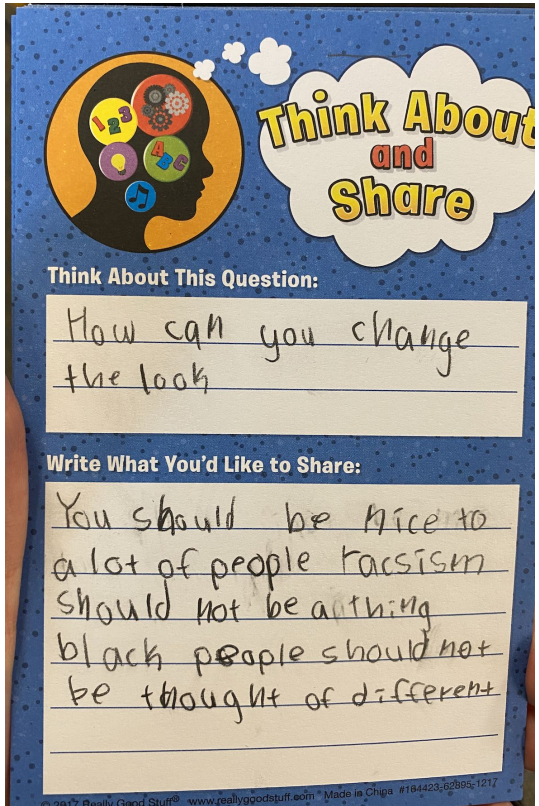 1 2 3
A B C
Think About
and
Share
Think About This Question:
How can you change
the look
Write What You'd Like to Share:
You should be nice to
a lot of people racsism
should not be a thing
black people should not
be thought of different
© 2017 Really Good Stuff® www.reallygoodstuff.com Made in China #164423-62895-1217